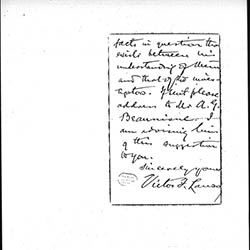 facts in question that
exists between his
understanding of them
and that of the inves-
tigators. If you'll please
address to Mr A. G.
Beaunisne. I
am advising him
of this suggestion
to you.
Sincerely yours
Victor S.